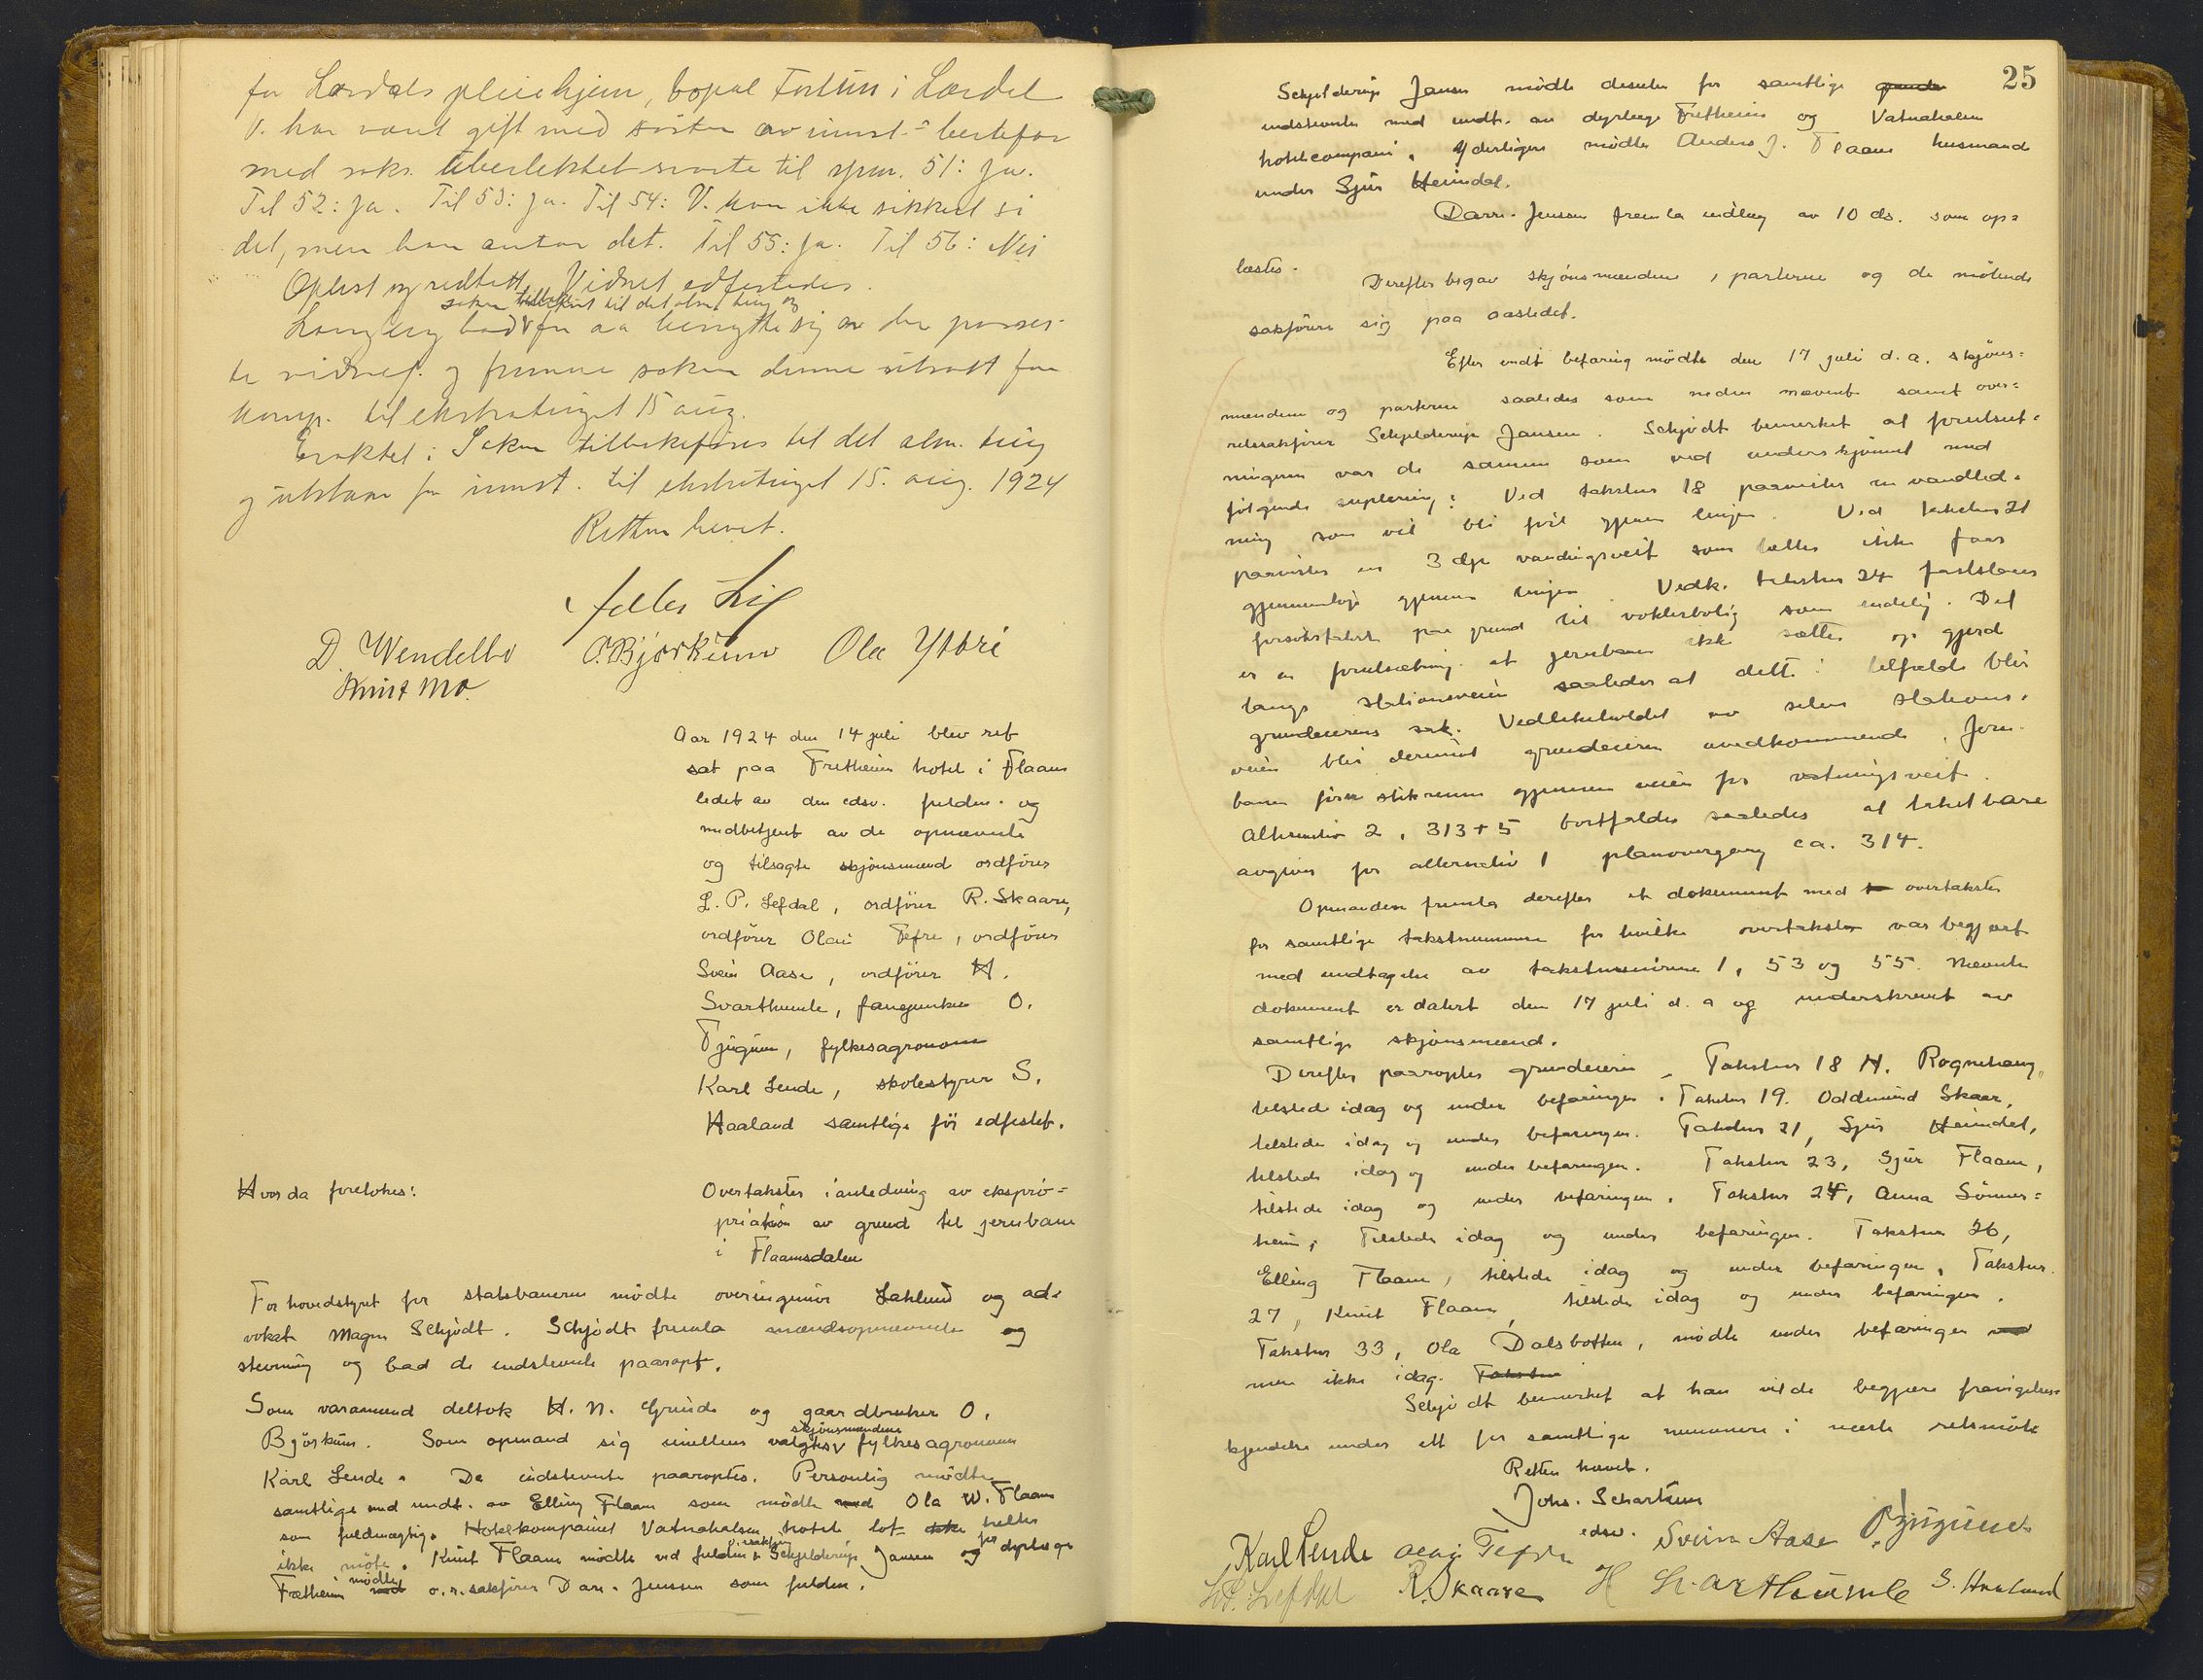 for Lærdals pleiehjem, bopæl i Lærdal
V. har været gift med søster av innst.s bestefar
med saks. svarte til spm. 51: Ja.
Til 52: Ja. Til 53: Ja. Til 54: V. kan ikke sikkert si
det, men han antar det. Til 55: Ja. Til 56: Nei
Oplest og vedtatt. Vidnet edfestedes.
saken til det alm. ting og
bad for aa benytte sig av de
te vidnef. og fremme saken denne utsatt for
komp. til ekstratinget 15 aug.
Eraktet: Saken tilbakeføres til det alm. ting
og utstaar for innst. til ekstratinget 15. aug. 1924
Retten hevet.
D. Wendelbo O. Bjørkum Ola Yttri
Knut Mo.
Aar 1924 den 14 juli blev ret
sat paa Fretheim hotel i Flaam
ledet av den edsv. fuldm. og
medbetjent av de opnævnte
og tilsagte skjønsmænd ordfører
L. P. Lefdal, ordfører R. Skaare,
ordfører Olai Tefre, ordfører
Svein Aase, ordfører H.
Svarthumle, O.
Tjugum, fylkesagronom
Karl Lende, skolestyrer S.
Haaland samtlige før edfestet.
Hvor da foretokes:
Overtakster i anledning av ekspro=
priation av grund til jernbane
i Flaamsdalen
For hovedstyret for statsbanerne mødte overingeniør og ad=
vokat Magne Schjødt. Schjødt fremla mændsopnævnelse og
stevning og bad de indstevnte paaropt.
Som varamænd deltok H. N. Grinde og gaardbruker O.
Bjørkum. Som opmand sig imellem valgtes skjønsmændene fylkesagronom
Karl Lende. De indstevnte paaroptes. Personlig mødte
samtlige med undt. av Elling Flaam som mødte med Ola W. Flaam
som fuldmægtig. Hotelkompaniet Vatnahalsen hotel lot ikke heller
ikke møte. Knut Flaam mødte ved fuldm. o.r.sakfører Schjelderup Jansen og for dyrlæge
Fretheim mødte med o.r.sakfører Jensen som fuldm.
25
Schjelderup Jansen mødte desuten for samtlige grunde
indstevnte med undt. av dyrlæge Fretheim og Vatnahalsen
hotelcompani. Yderligere mødte Anders J. Flaam husmand
under Sjur Heimdal.
Jensen fremla indlæg av 10 ds. som op=
læstes.
Derefter begav skjønsmændene, parterne og de møtende
sakførere sig paa aastedet.
Efter endt befaring mødte den 17 juli d.a. skjøns=
mændene og parterne saaledes som neden nævnt samt over=
retssakfører Schjelderup Jansen. Schjødt bemerket at forutsæt=
ningene var de samme som ved underskjønnet med
følgende suplering: Ved takstnr 18 paavistes en vandled=
ning som vil bli ført gjennem linjen. Ved takstnr 21
paavistes en 3dje vandingsveit som heller ikke faar
gjennemløp gjennem linjen. Vedk. takstnr 24 fastslaaes
forsøkstakst paa grund til vokterbolig som endelig. Det
er en forutsætning at jernbanen ikke sætter op gjerd
langs stationsveien saaledes at dette i tilfælde blir
grundeierens sak. Vedlikeholdet av selve stations=
veien blir derimot grundeieren uvedkommende. Jern=
banen fører stikrenne gjennem veien for vatningsveit.
Alternativ 2, 313+5 bortfalder saaledes at takst bare
avgives for alternativ 1 planovergang ca. 314.
Opmanden fremla derefter et dokument med overtakster
for samtlige takstnummere for hvilke overtakster var begjært
med undtagelse av takstnumrene 1, 53 og 55. Nævnte
dokument er datert den 17 juli d.a og underskrevet av
samtlige skjønsmænd.
Derefter paaroptes grundeieren. Takstnr 18 H. Rognehaug,
tilstede idag og under befaringen. Takstnr 19. Oddmund Skaar,
tilstede idag og under befaringen. Takstnr 21, Sjur Heimdal,
tilstede idag og under befaringen. Takstnr 23, Sjur Flaam,
tilstede idag og under befaringen. Takstnr 24, Anna Sønner=
heim, Tilstede idag og under befaringen. Takstnr 26,
Elling Flaam, tilstede idag og under befaringen. Takstnr
27, Knut Flaam, tilstede idag og under befaringen.
Takstnr 33, Ola Dalsbotten, mødte under befaringen
men ikke idag. Takstnr
Schjødt bemerket at han vilde begjære fravigelses=
kjendelse under ett for samtlige nummere i næste retsmøte
Retten hævet.
Johs. Schartum
edsv.
Karl Lende Olai Tefre Svein Aase O Tjugum
L.P. Lefdal R. Skaare H Svarthumle S. Haaland